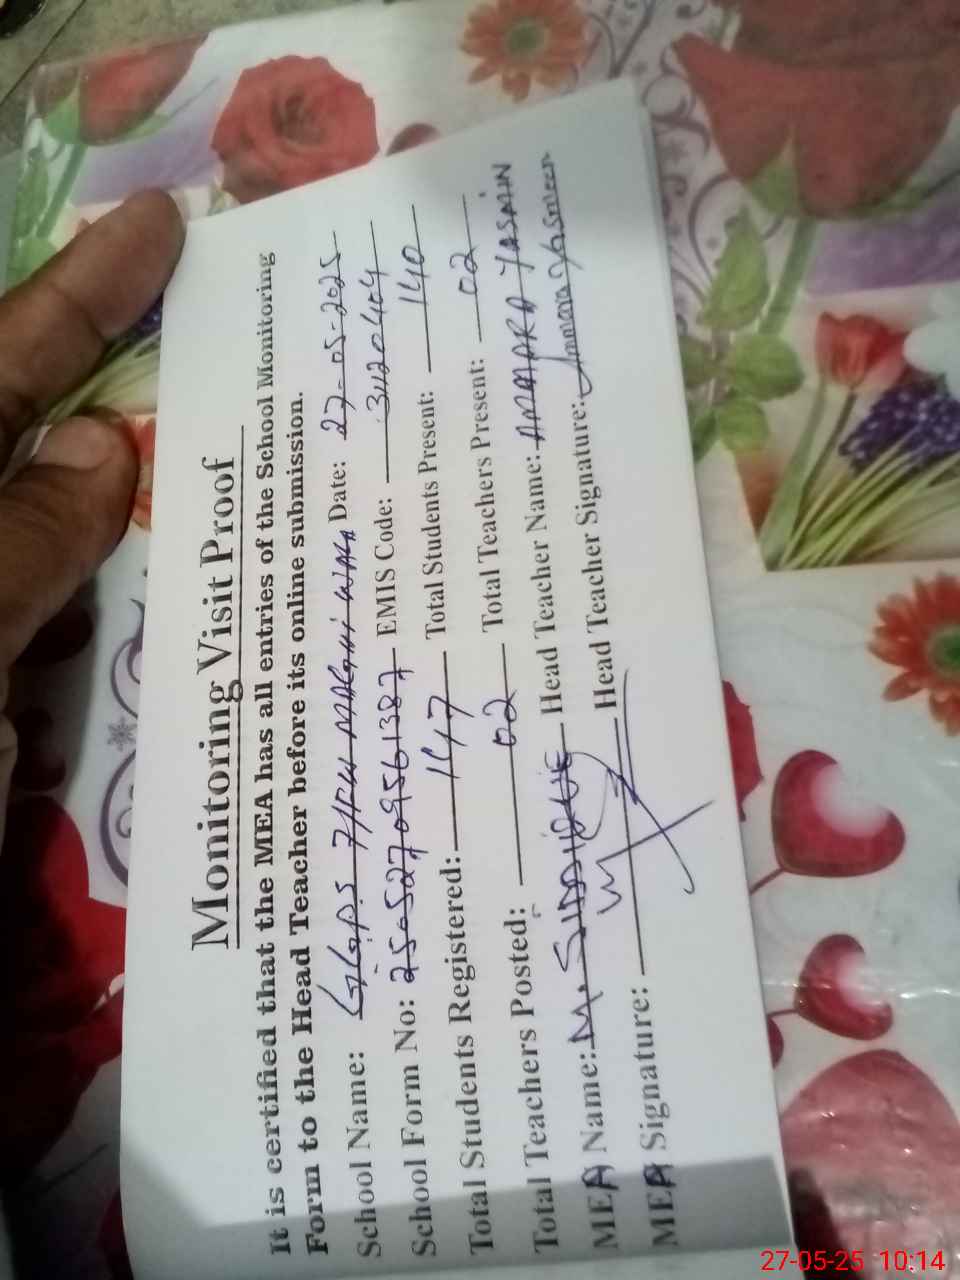 Monitoring Visit Proof
It is certified that the MEA has all entries of the School Monitoring
Form to the Head Teacher before its online submission.
School Name: G.G.P.S 7/FW MACHHI WALA Date: 27-05-2025
School Form No: 25052709561387 EMIS Code: 31120404
Total Students Registered: 147 Total Students Present: 140
Total Teachers Posted: 02 Total Teachers Present: 02
MEA Name: M. SIDDIQUE Head Teacher Name: AMMARA YASMIN
MEA Signature: Head Teacher Signature: Ammara Yasmeen
27-05-25 10:14